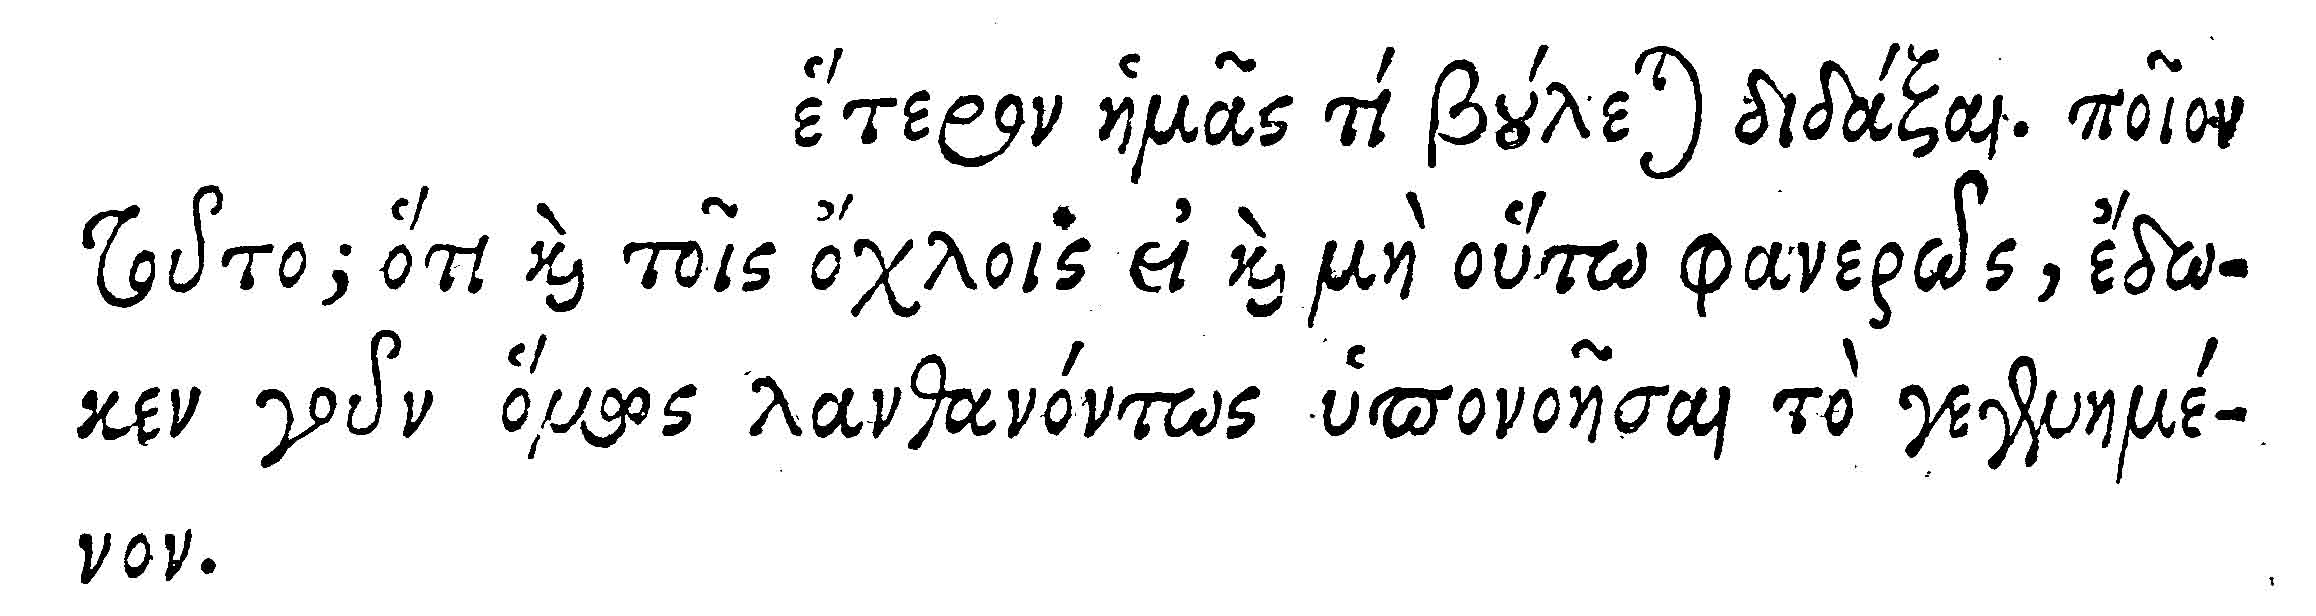 ἕτερον ἡμᾶς τί βούλεται διδάξαι. ποῖον
τοῦτο; ὅτι καὶ τοῖς ὄχλοις εἰ καὶ μὴ οὕτω φανερῶς, ἔδω-
κεν γοῦν ὅμως λανθανόντως ὑπονοῆσαι τὸ γεγενημέ-
νον.